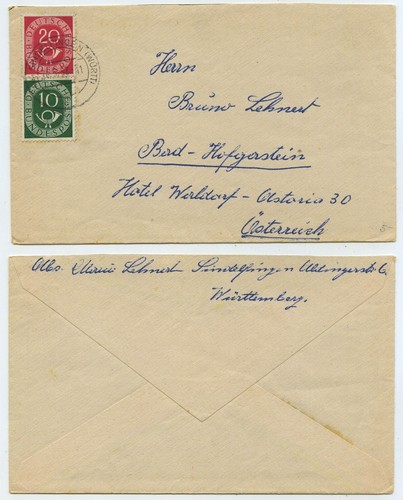 20
DEUTSCHE
BUNDESPOST
10
DEUTSCHE
BUNDESPOST
(WÜRTT)
Herrn
Bruno Lehnert
Bad-Hofgastein
Hotel Waldorf-Astoria 30
Österreich
Abs. Marie Lehnert Sindelfingen
Württemberg.